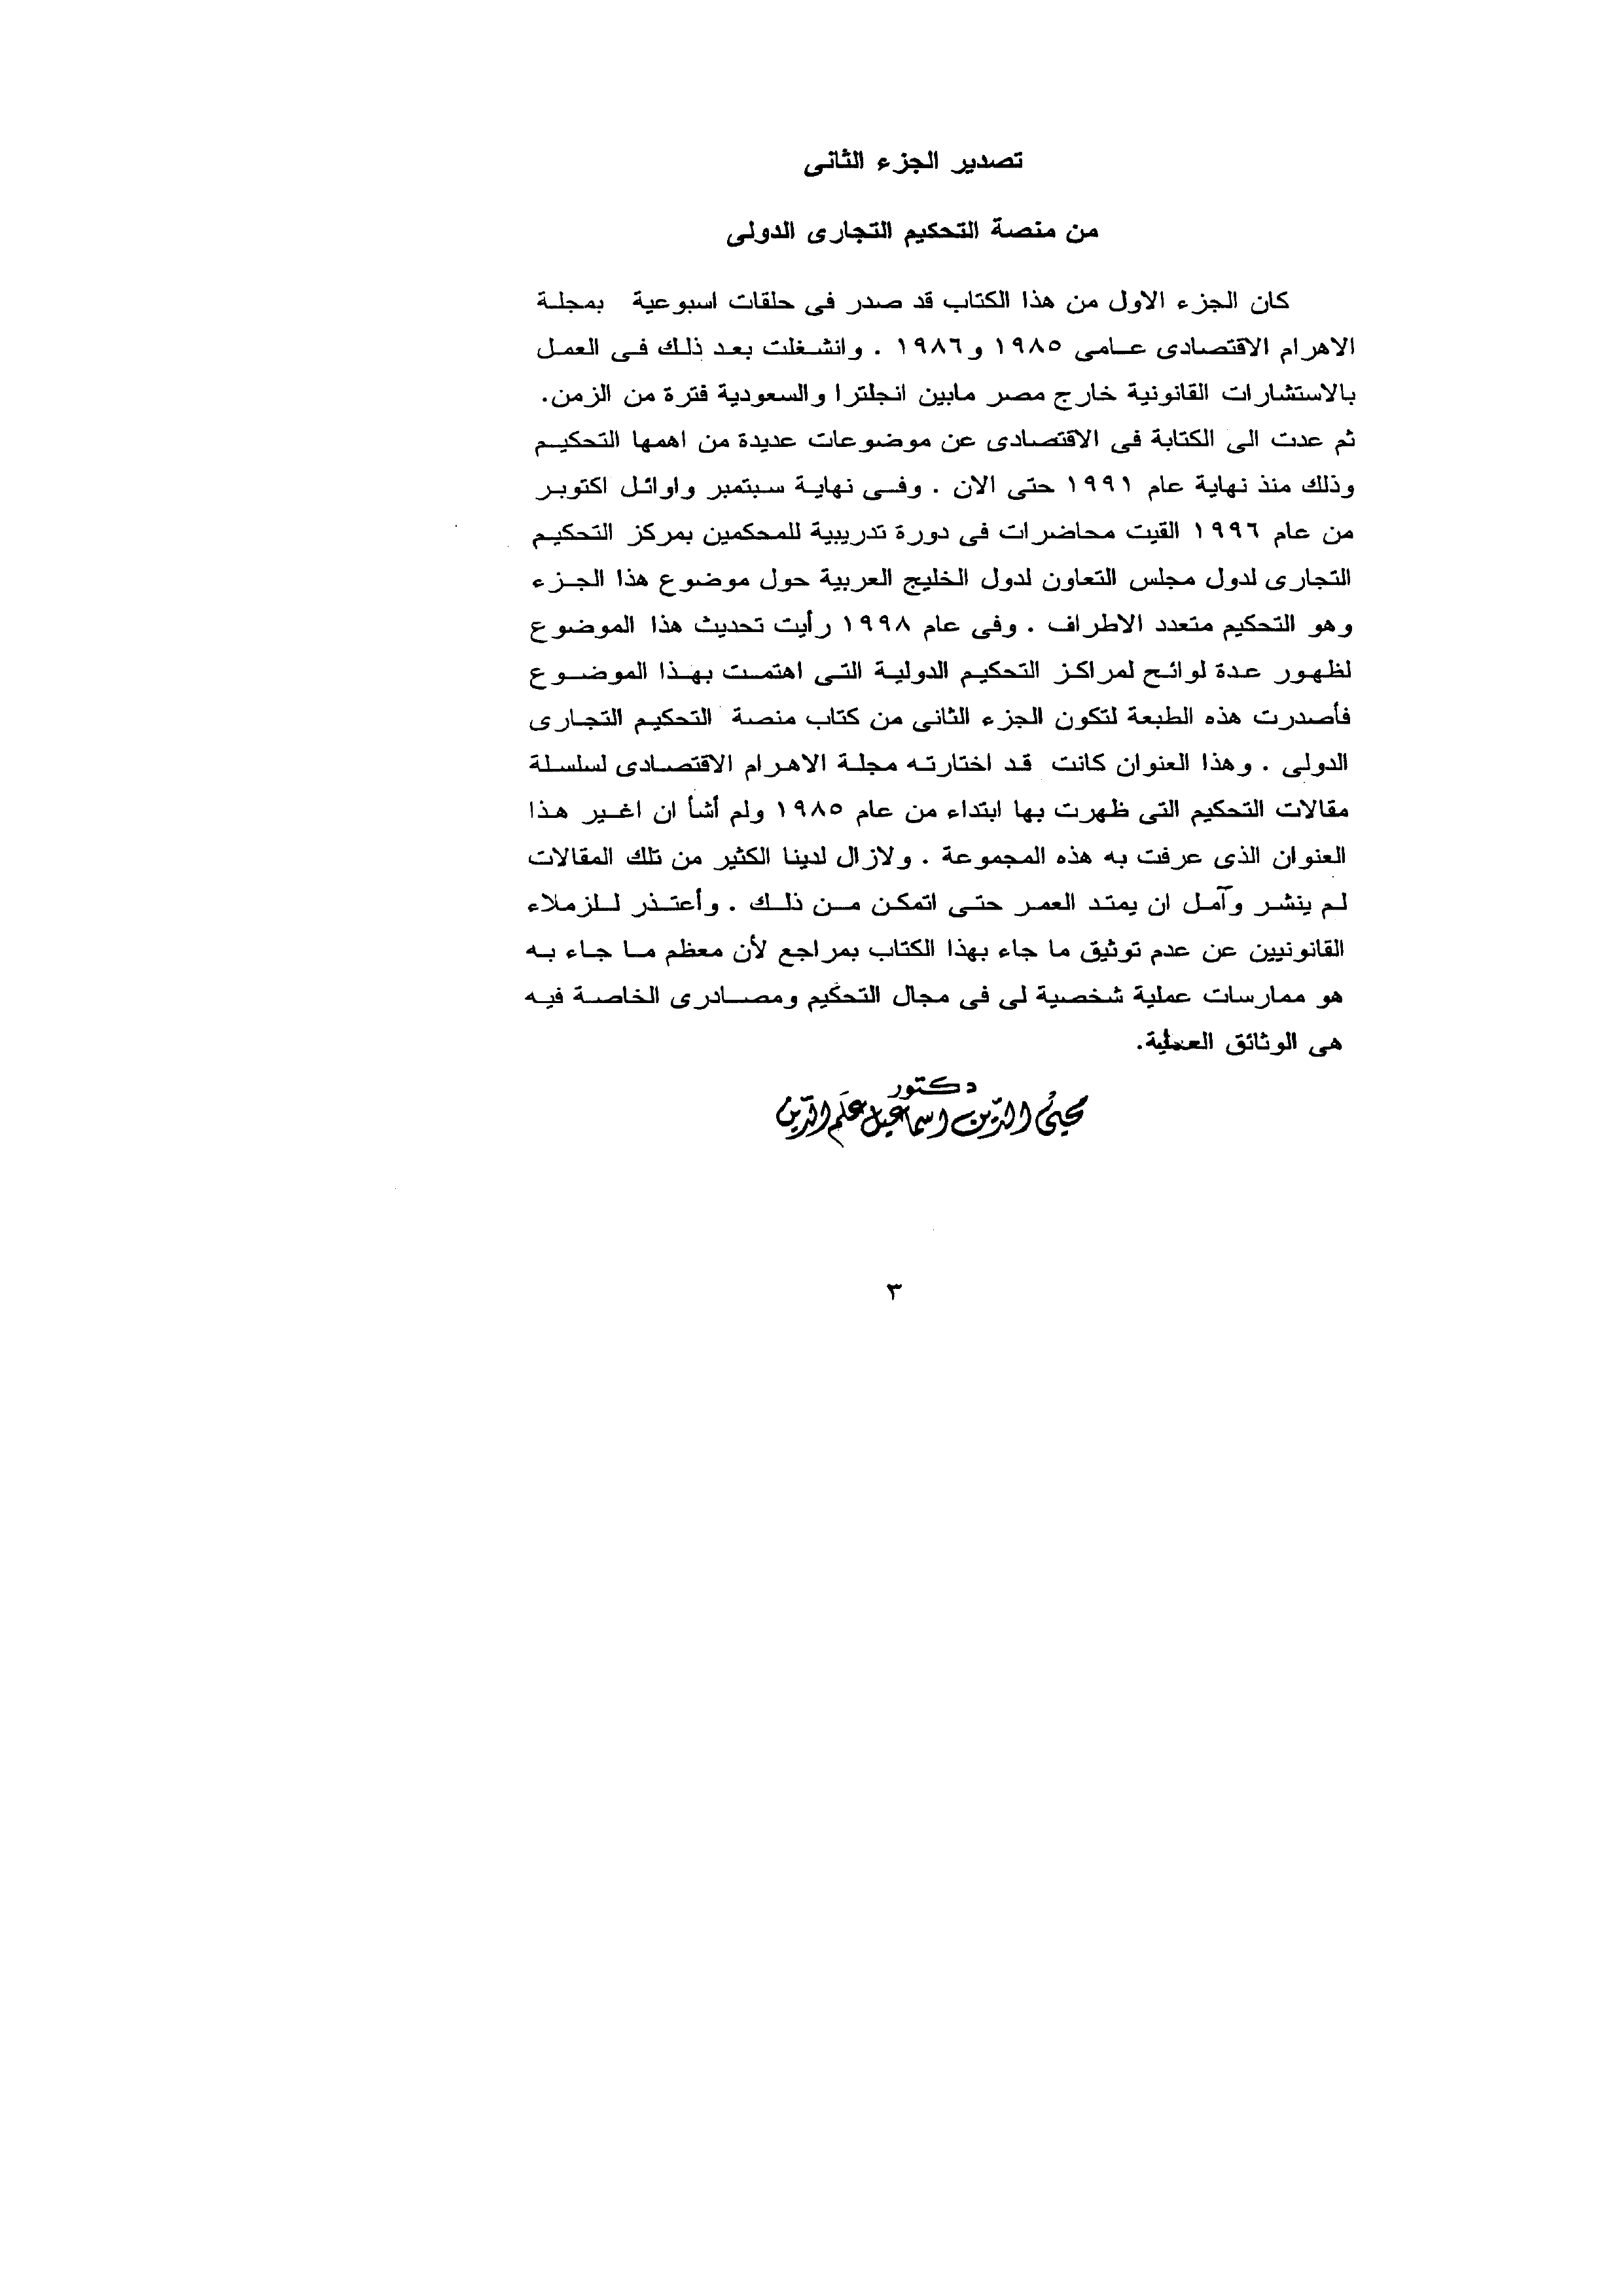 تصدير الجزء الثانى
من منصة التحكيم التجارى الدولى
كان الجزء الاول من هذا الكتاب قد صدر فى حلقات اسبوعية بمجلة
الاهرام الاقتصادى عامى ١٩٨٥ و١٩٨٦ . وانشغلت بعد ذلك فى العمل
بالاستشارات القانونية خارج مصر مابين انجلترا والسعودية فترة من الزمن.
ثم عدت الى الكتابة فى الاقتصادى عن موضوعات عديدة من اهمها التحكيم
وذلك منذ نهاية عام ١٩٩١ حتى الان . وفى نهاية سبتمبر واوائل اكتوبر
من عام ١٩٩٦ القيت محاضرات فى دورة تدريبية للمحكمين بمركز التحكيم
التجارى لدول مجلس التعاون لدول الخليج العربية حول موضوع هذا الجزء
وهو التحكيم متعدد الاطراف . وفى عام ١٩٩٨ رأيت تحديث هذا الموضوع
لظهور عدة لوائح لمراكز التحكيم الدولية التى اهتمت بهذا الموضوع
فأصدرت هذه الطبعة لتكون الجزء الثانى من كتاب منصة التحكيم التجارى
الدولى . وهذا العنوان كانت قد اختارته مجلة الاهرام الاقتصادى لسلسلة
مقالات التحكيم التى ظهرت بها ابتداء من عام ١٩٨٥ ولم أشأ ان اغير هذا
العنوان الذى عرفت به هذه المجموعة . ولازال لدينا الكثير من تلك المقالات
لم ينشر وآمل ان يمتد العمر حتى اتمكن من ذلك . وأعتذر للزملاء
القانونيين عن عدم توثيق ما جاء بهذا الكتاب بمراجع لأن معظم ما جاء به
هو ممارسات عملية شخصية لى فى مجال التحكيم ومصادرى الخاصة فيه
هى الوثائق العملية.
دكتور
محيى الدين اسماعيل علم الدين
٣